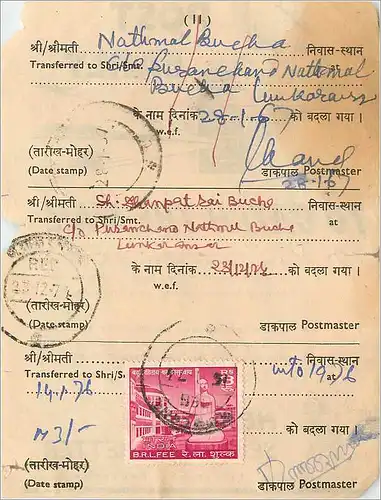 (11)
श्री/श्रीमती Nathmal Bucha निवास-स्थान
Transferred to Shri/Smt. C/o Puranchand Nathmal at
Bucha Lunkaransar
के नाम दिनांक 28-1-67 को बदला गया।
w.e.f.
(तारीख-मोहर)
(Date stamp) डाकपाल Postmaster
28-1-67
श्री/श्रीमती Sh. Sampat Rai Bucha निवास-स्थान
Transferred to Shri/Smt. at
C/o Puranchand Nathmal Bucha
Lunkaransar
के नाम दिनांक को बदला गया।
w.e.f.
(तारीख-मोहर)
(Date stamp) डाकपाल Postmaster
श्री/श्रीमती निवास-स्थान
Transferred to Shri/S at
14.1.76
3/- को बदला गया।
B.R.L.FEE रे. ला. शुल्क
(तारीख-मोहर)
(Date stamp) डाकपाल Postmaster